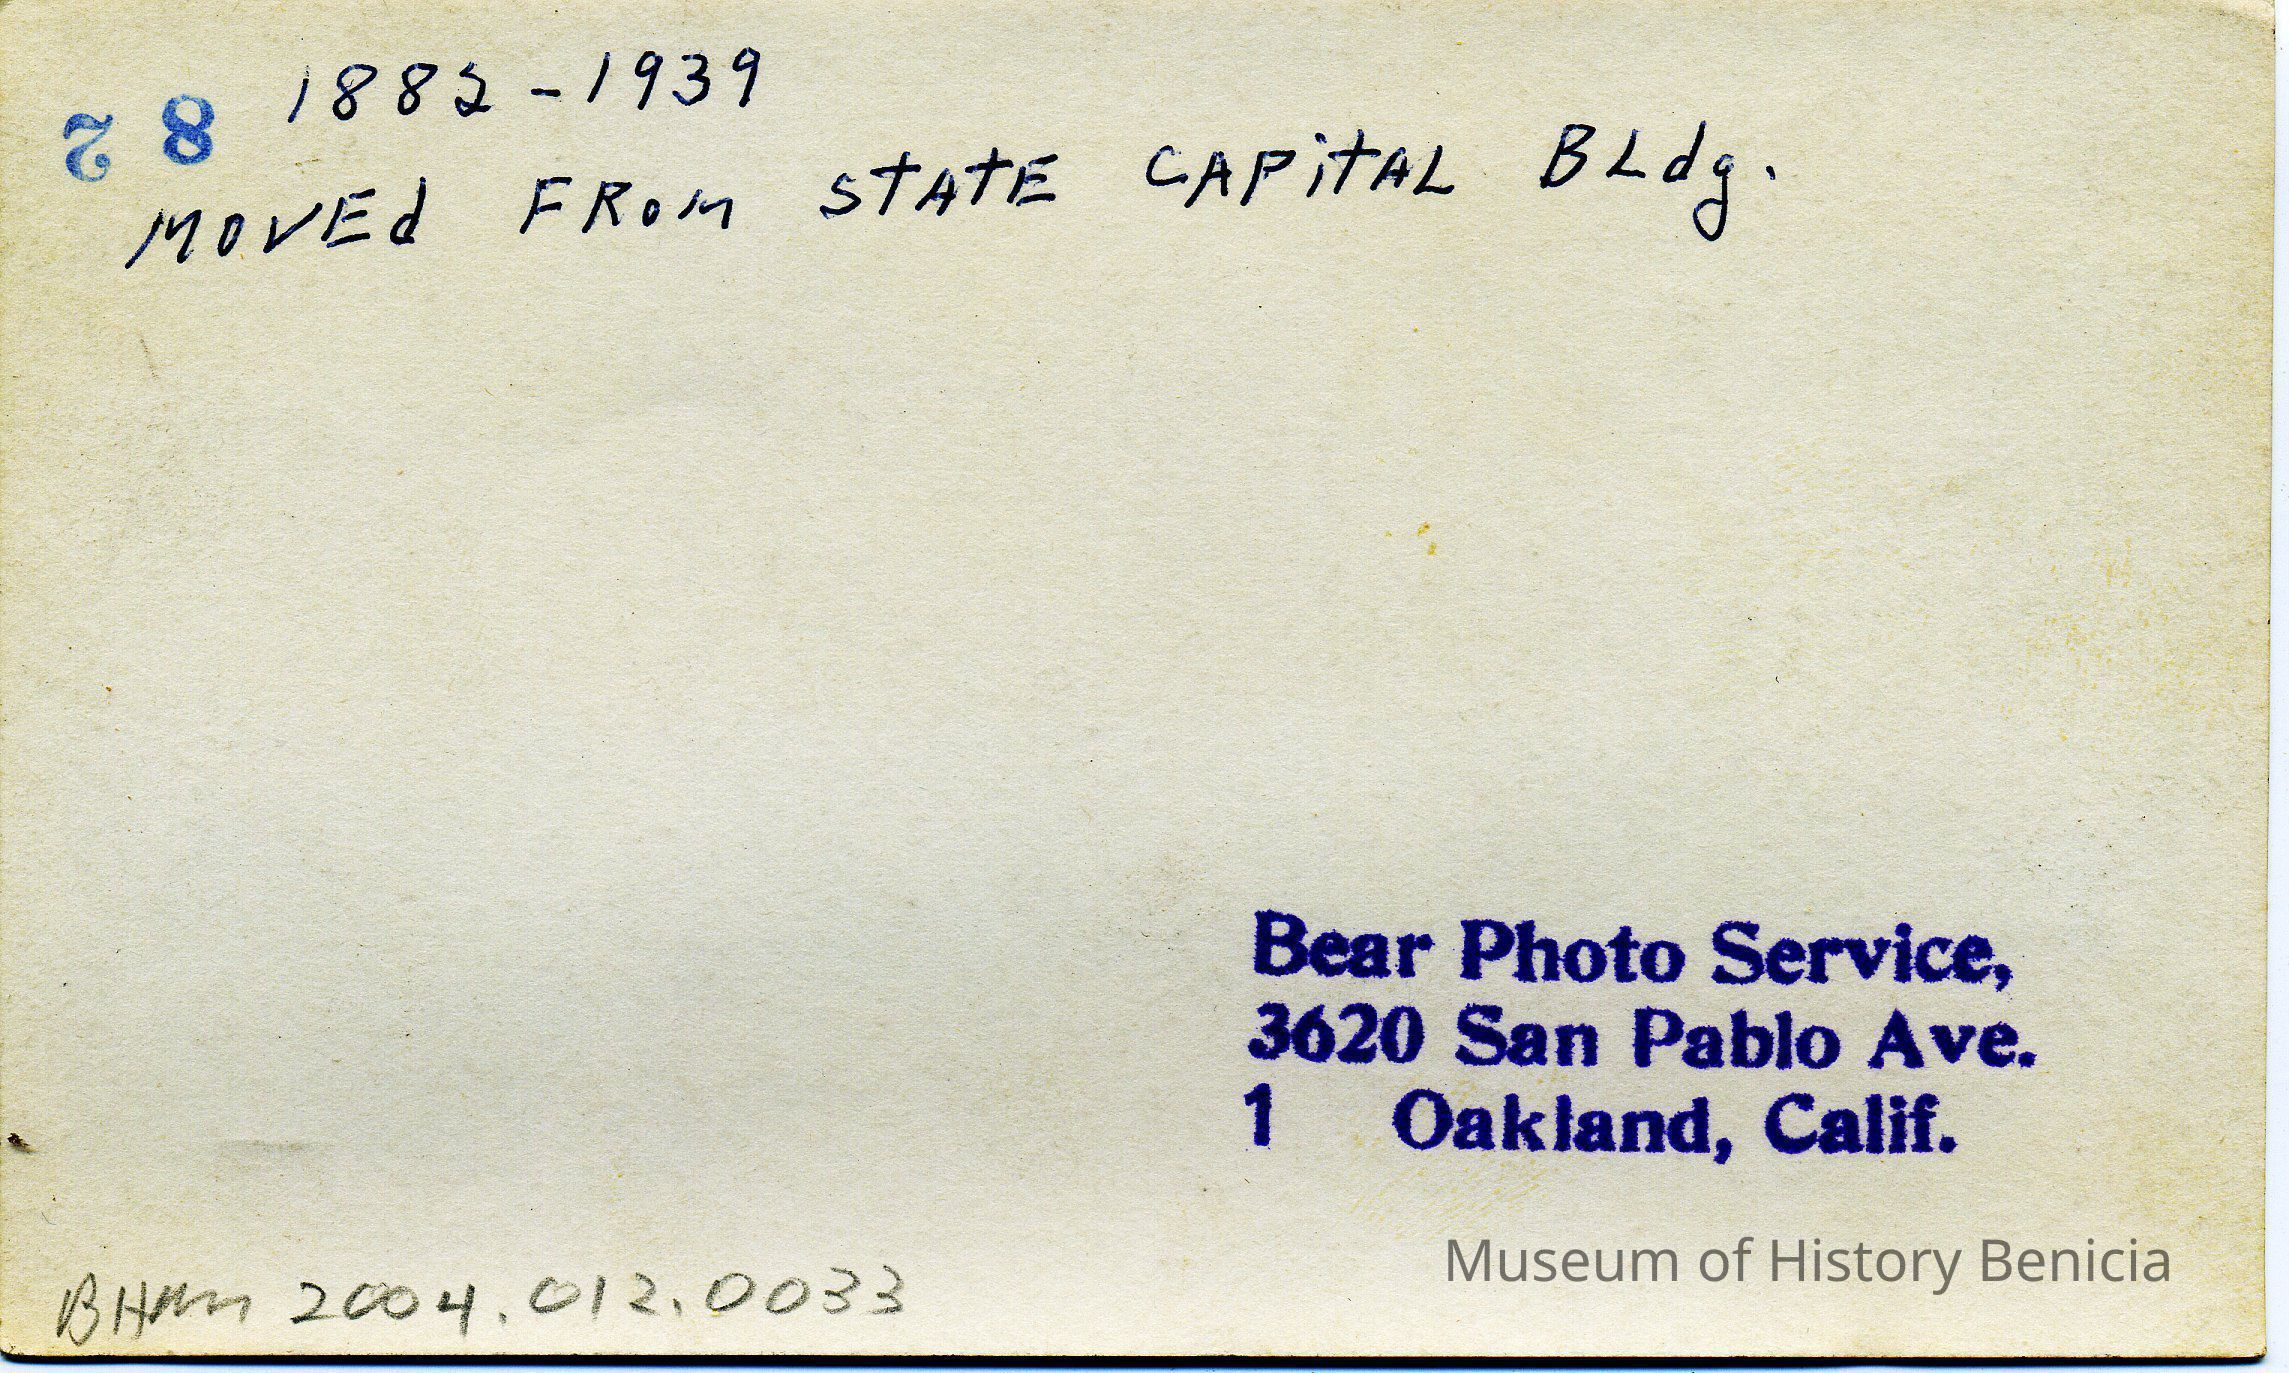 1882-1939
28
MOVEd FROM STATE CAPitAL BLdg.
Bear Photo Service,
3620 San Pablo Ave.
1 Oakland, Calif.
Museum of History Benicia
BHM 2004.012.0033